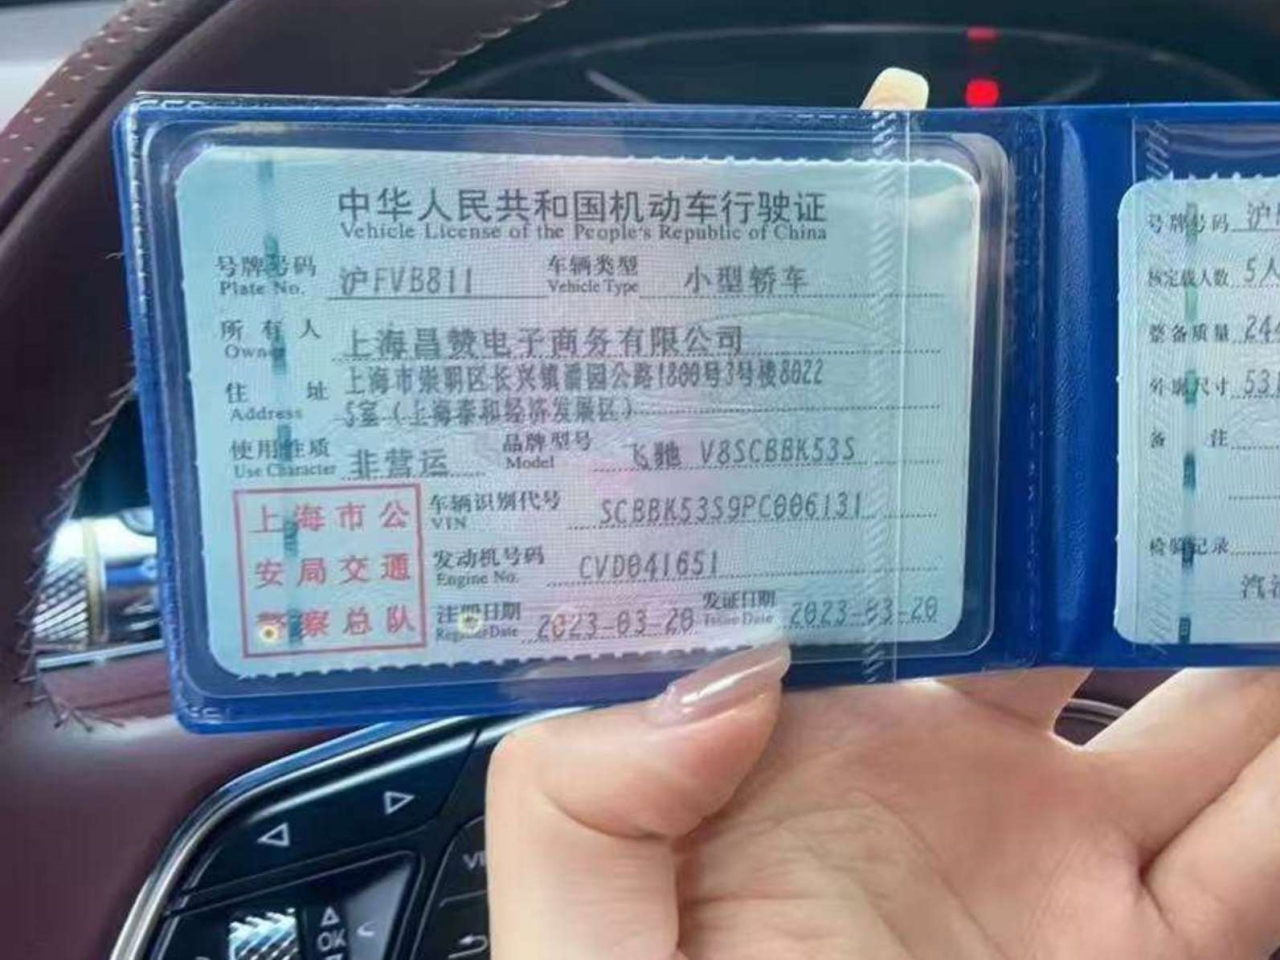 中华人民共和国机动车行驶证
Vehicle License of the People's Republic of China
号牌号码 沪FVB811 车辆类型 小型轿车
Plate No. Vehicle Type
所有人 上海昌赞电子商务有限公司
Owner
住址 上海市崇明区长兴镇潘园公路1800号3号楼8022
Address 5室(上海泰和经济发展区)
使用性质 非营运 品牌型号 飞驰 V8SCBBK53S
Use Character Model
上海市公
安局交通
警察总队
车辆识别代号 SCBBK53S9PC006131
VIN
发动机号码 CVD041651
Engine No.
注册日期 2023-03-20 发证日期 2023-03-20
Register Date Issue Date
号牌号码 沪
核定载人数 5人
整备质量 24
外廓尺寸 53
备注
检验记录
OK